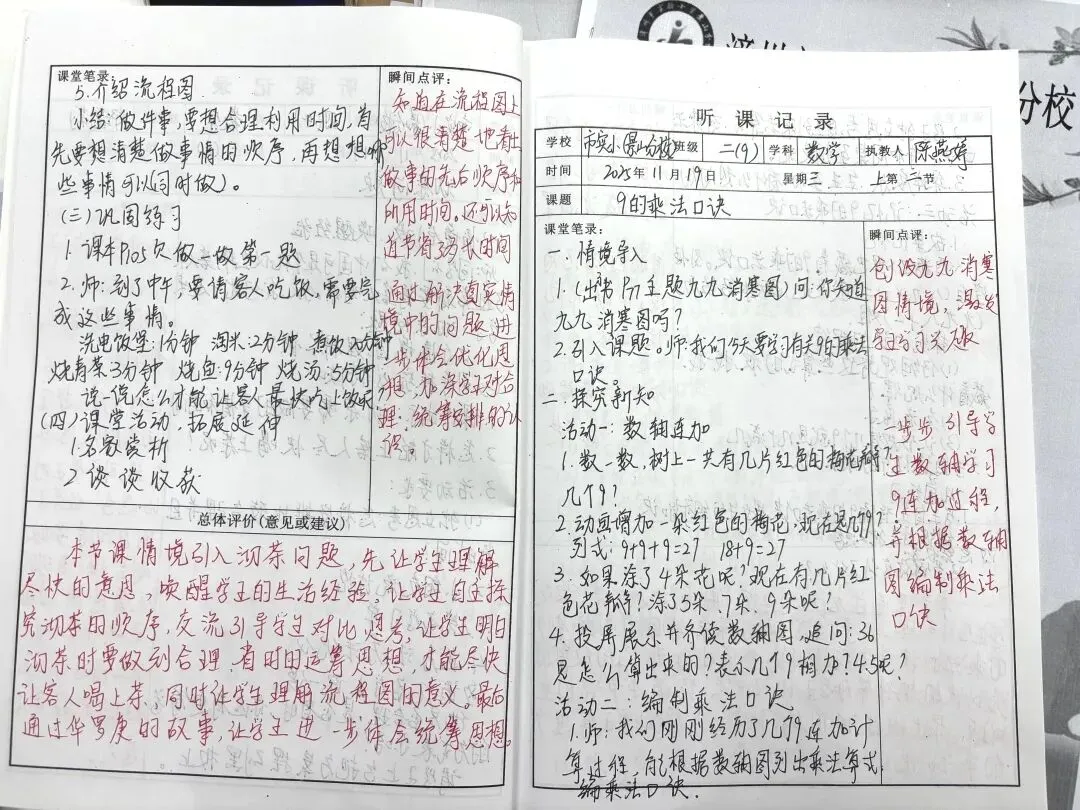 课堂笔录
5.介绍流程图
小结:做件事,要想合理利用时间,首
先要想清楚做事情的顺序,再想想哪
些事情可以同时做)。
(三)巩固练习
1.课本P105页做一做第一题
2.师:到了中午,要请客人吃饭,需要完
成这些事情。
洗电饭煲:1分钟 淘米:2分钟 煮饭20分钟
烧青菜3分钟 烧鱼:9分钟 烧汤:5分钟
说一说怎么才能让客人最快吃上饭菜
(四)课堂活动,拓展延伸
1.名家赏析
2 谈谈收获
瞬间点评:
知道在流程图上
可以很清楚地看出
做事的先后顺序和
所用时间。还可以知
道节省了多长时间
通过解决真实情
境中的问题,进一
步体会优化思
想,加深学生对合
理、统筹安排的认
识。
总体评价(意见或建议)
本节课情境引入沏茶问题,先让学生理解
尽快的意思,唤醒学生的生活经验。让学生自主探
究沏茶的顺序,交流引导学生对比思考,让学生明白
沏茶时要做到合理、省时的运筹思想,才能尽快
让客人喝上茶,同时让学生理解流程图的意义。最后
通过华罗庚的故事,让学生进一步体会统筹思想。
听课记录
学校 市实小泉山分校 班级 二(9) 学科 数学 执教人 陈燕婷
时间 2025年11月19日 星期三 上第二节
课题 9的乘法口诀
课堂笔录:
一.情境导入
1.(出书P71主题九九消寒图)问:你知道
九九消寒图吗?
2.引入课题。师:我们今天要学习有关9的乘法
口诀。
二.探究新知
活动一:数轴连加
1.数一数,树上一共有几片红色的梅花花瓣?
几个9?
2.动画增加一朵红色的梅花,现在是几个9?
列式:9+9+9=27 18+9=27
3.如果涂了4朵花呢?现在有几片红
色花瓣?涂了5朵、7朵、9朵呢?
4.投屏展示并齐读数轴图,追问:36
是怎么算出来的?表示几个9相加?45呢?
活动二:编制乘法口诀
1.师:我们刚刚经历了几个9连加计
算过程,能根据数轴图列出乘法算式
编乘法口诀.
瞬间点评:
创设九九消寒
图情境,激发
学生学习兴趣
一步步引导学
生数轴学习
9连加过程,
并根据数轴
图编制乘法
口诀
分校